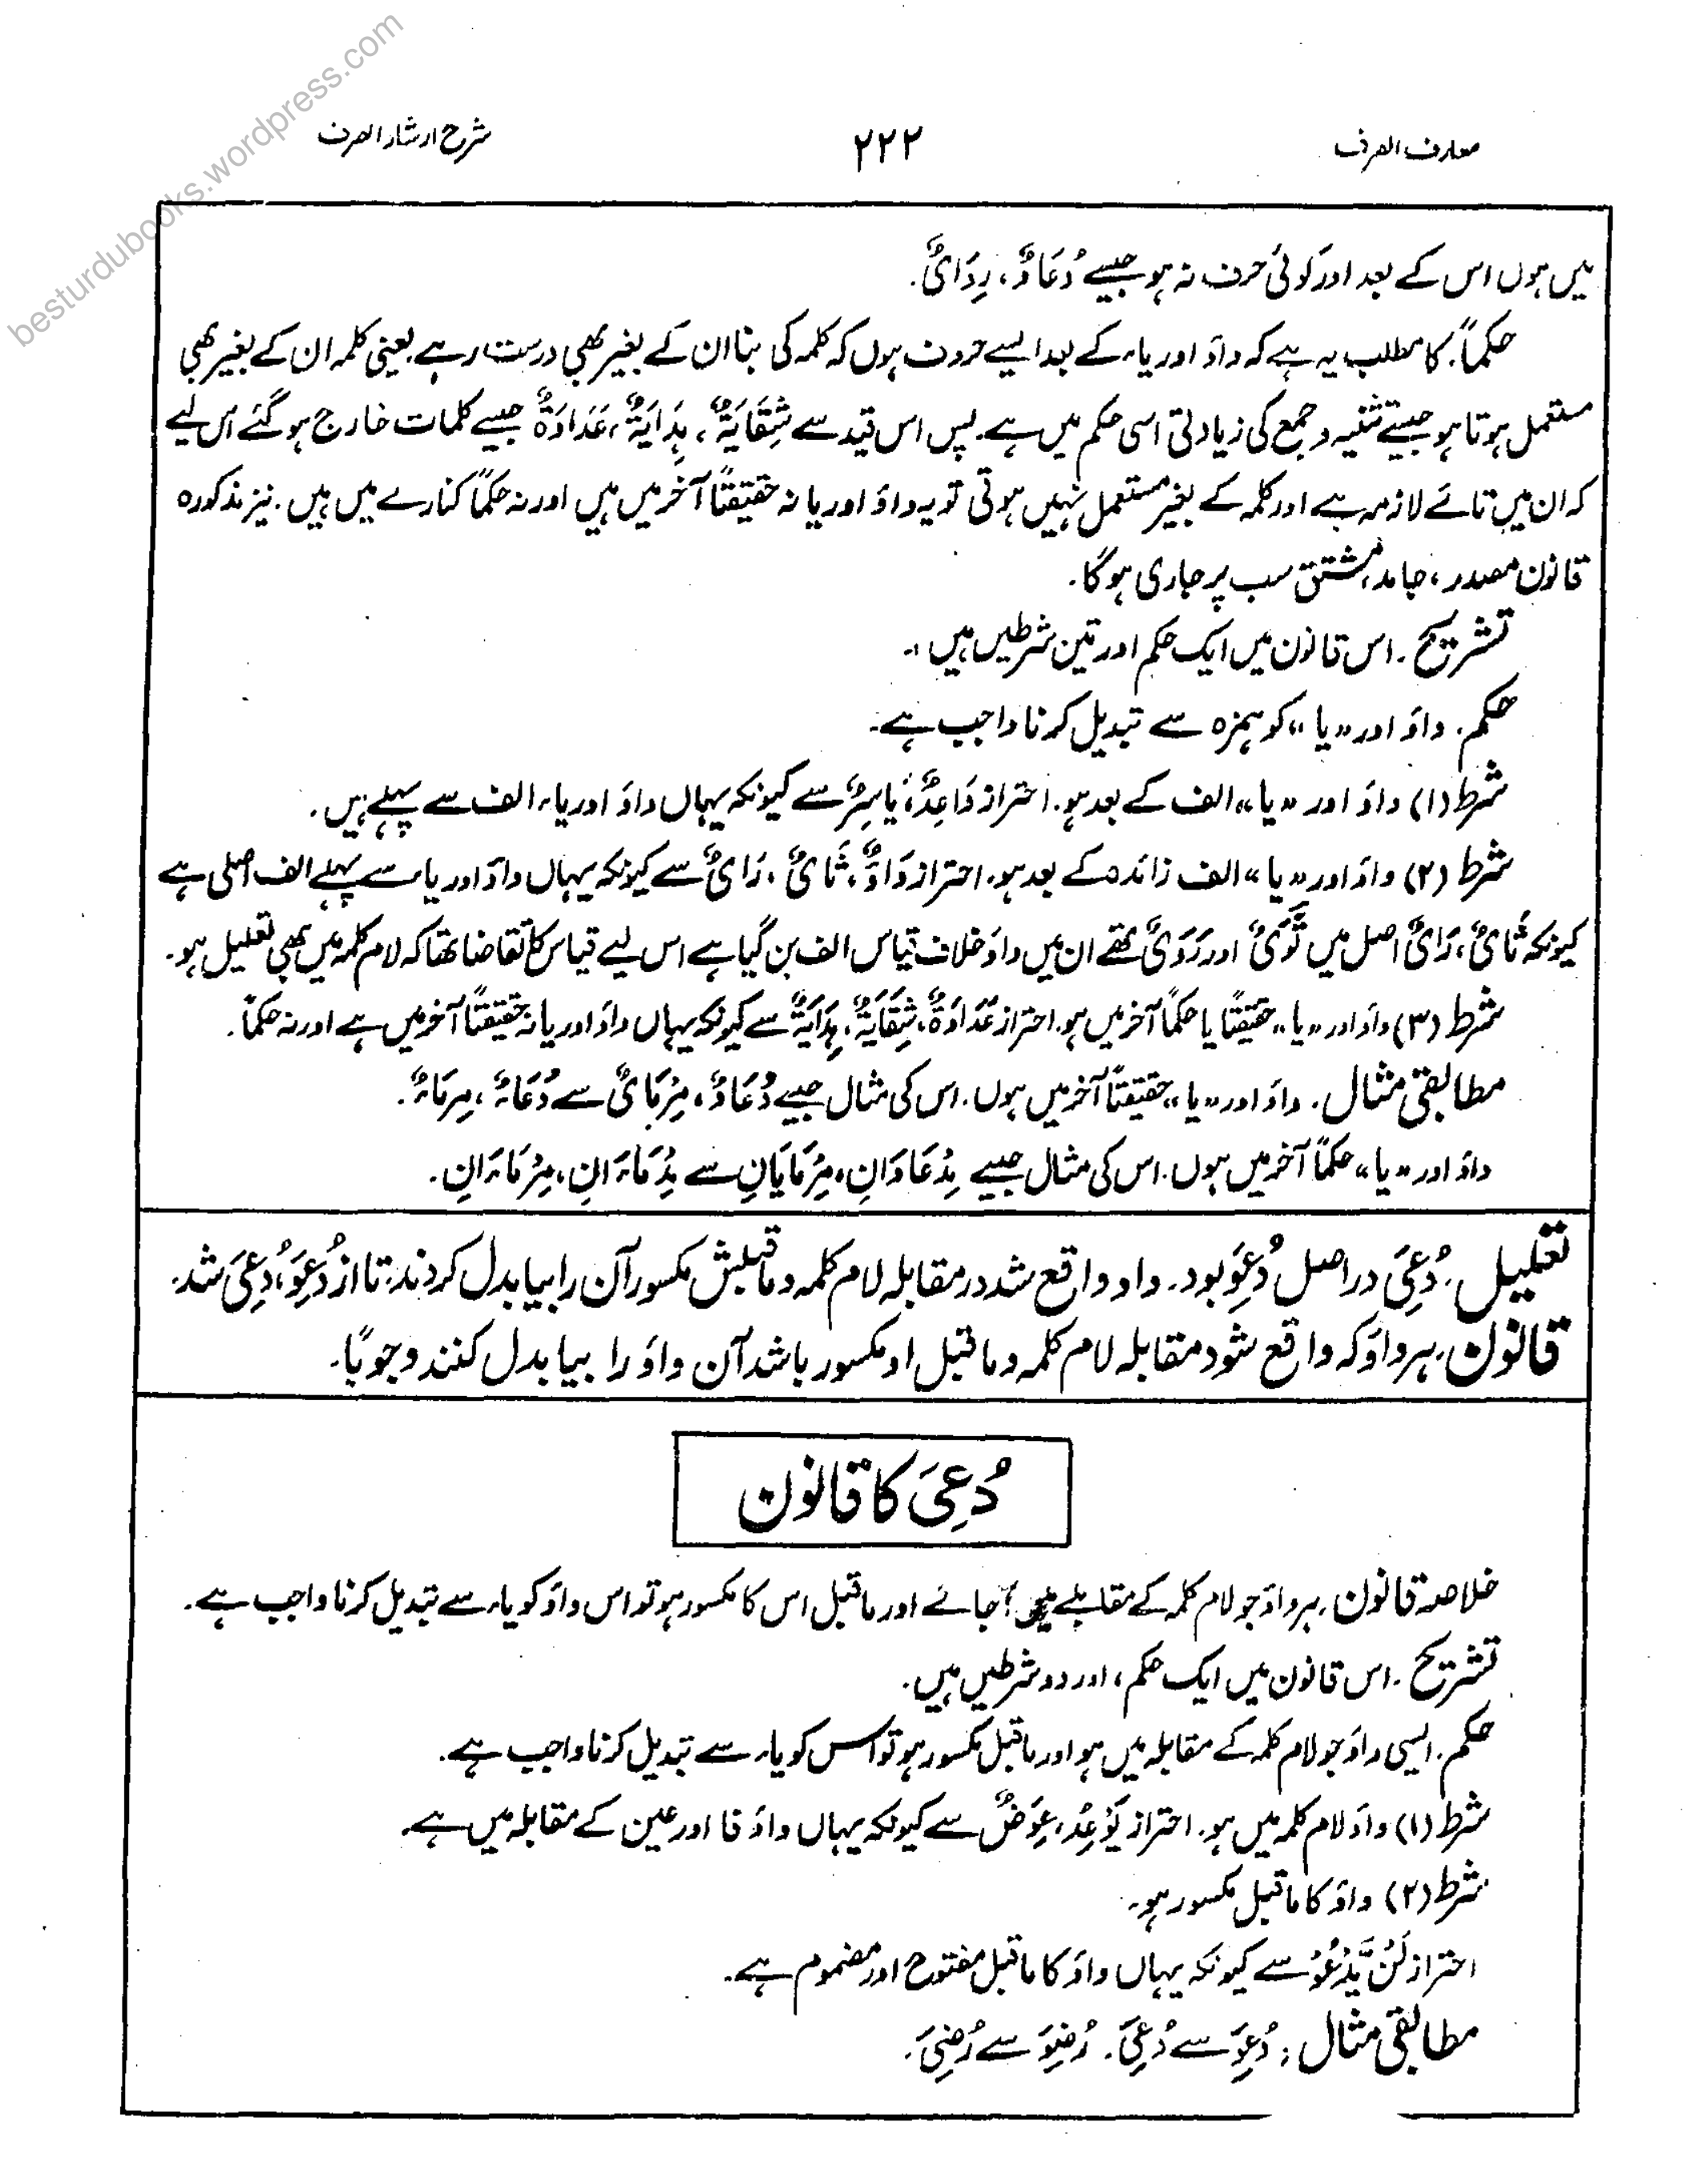 besturdubooks.wordpress.com
معارف الصرف
۲۲۲
شرح ارشاد الصرف
میں ہوں اس کے بعد اور کوئی حرف نہ ہو جیسے دُعَاوٌ، رِدَایٌ.
حکماً. کا مطلب یہ ہے کہ واؤ اور یاء کے بعد ایسے حروف ہوں کہ کلمہ کی بنا ان کے بغیر بھی درست رہے یعنی کلمہ ان کے بغیر بھی
مستعمل ہوتا ہو جیسے تثنیہ و جمع کی زیادتی اسی حکم میں ہے. پس اس قید سے شِقَایَةٌ، ہِدَایَةٌ، عَدَاوَةٌ جیسے کلمات خارج ہو گئے اس لیے
کہ ان میں تائے لازمہ ہے اور کلمہ کے بغیر مستعمل نہیں ہوتی تو یہ واؤ اور یا نہ حقیقتاً آخر میں ہیں اور نہ حکماً کنارے میں ہیں. نیز مذکورہ
قانون مصدر، جامد، مشتق سب پر جاری ہوگا.
تشریح. اس قانون میں ایک حکم اور تین شرطیں ہیں۔
حکم. واؤ اور «یا» کو ہمزہ سے تبدیل کرنا واجب ہے.
شرط (۱) واؤ اور «یا» الف کے بعد ہو. احتراز وَاعِدٌ، یَاسِرٌ سے کیونکہ یہاں واؤ اور یاء الف سے پہلے ہیں.
شرط (۲) واؤ اور «یا» الف زائدہ کے بعد ہو. احتراز وَاوٌ، ثَایٌ، رَایٌ سے کیونکہ یہاں واؤ اور یاء سے پہلے الف اصلی ہے
کیونکہ ثَایٌ، رَایٌ اصل میں ثَوَیٌ اور رَوَیٌ تھے ان میں واؤ خلاف قیاس الف بن گیا ہے اس لیے قیاس کا تقاضا تھا کہ لام کلمہ میں بھی تعلیل ہو.
شرط (۳) واؤ اور «یا» حقیقتاً یا حکماً آخر میں ہو. احتراز عَدَاوَةٌ، شِقَایَةٌ، ہِدَایَةٌ سے کیونکہ یہاں واؤ اور یا نہ حقیقتاً آخر میں ہے اور نہ حکماً.
مطابقی مثال. واؤ اور «یا» حقیقتاً آخر میں ہوں. اس کی مثال جیسے دُعَاوٌ، مِرْمَایٌ سے دُعَاءٌ، مِرْمَاءٌ.
واؤ اور «یا» حکماً آخر میں ہوں. اس کی مثال جیسے مِدْعَاوَانِ، مِرْمَایَانِ سے مِدْعَاءَانِ، مِرْمَاءَانِ.
تعلیل. دُعِیَ در اصل دُعِوَ بود. واو واقع شد در مقابلہ لام کلمہ و ما قبلش مکسور آن را بیا بدل کردند. تا از دُعِوَ، دُعِیَ شد.
قانون. ہر واؤ کہ واقع شود مقابلہ لام کلمہ و ما قبل او مکسور باشد آن واؤ را بیا بدل کنند وجوبًا.
دُعِیَ کا قانون
خلاصہ قانون. ہر واؤ جو لام کلمہ کے مقابلے میں آجائے اور ما قبل اس کا مکسور ہو تو اس واؤ کو یاء سے تبدیل کرنا واجب ہے.
تشریح. اس قانون میں ایک حکم، اور دو شرطیں ہیں.
حکم. ایسی واؤ جو لام کلمہ کے مقابلہ میں ہو اور ما قبل مکسور ہو تو اس کو یاء سے تبدیل کرنا واجب ہے.
شرط (۱) واؤ لام کلمہ میں ہو. احتراز یَوْعِدُ، عِوَضٌ سے کیونکہ یہاں واؤ فا اور عین کے مقابلہ میں ہے.
شرط (۲) واؤ کا ما قبل مکسور ہو.
احتراز لَنْ یَّدْعُوَ سے کیونکہ یہاں واؤ کا ما قبل مفتوح اور مضموم ہے.
مطابقی مثال: دُعِوَ سے دُعِیَ. رُضِوَ سے رُضِیَ.